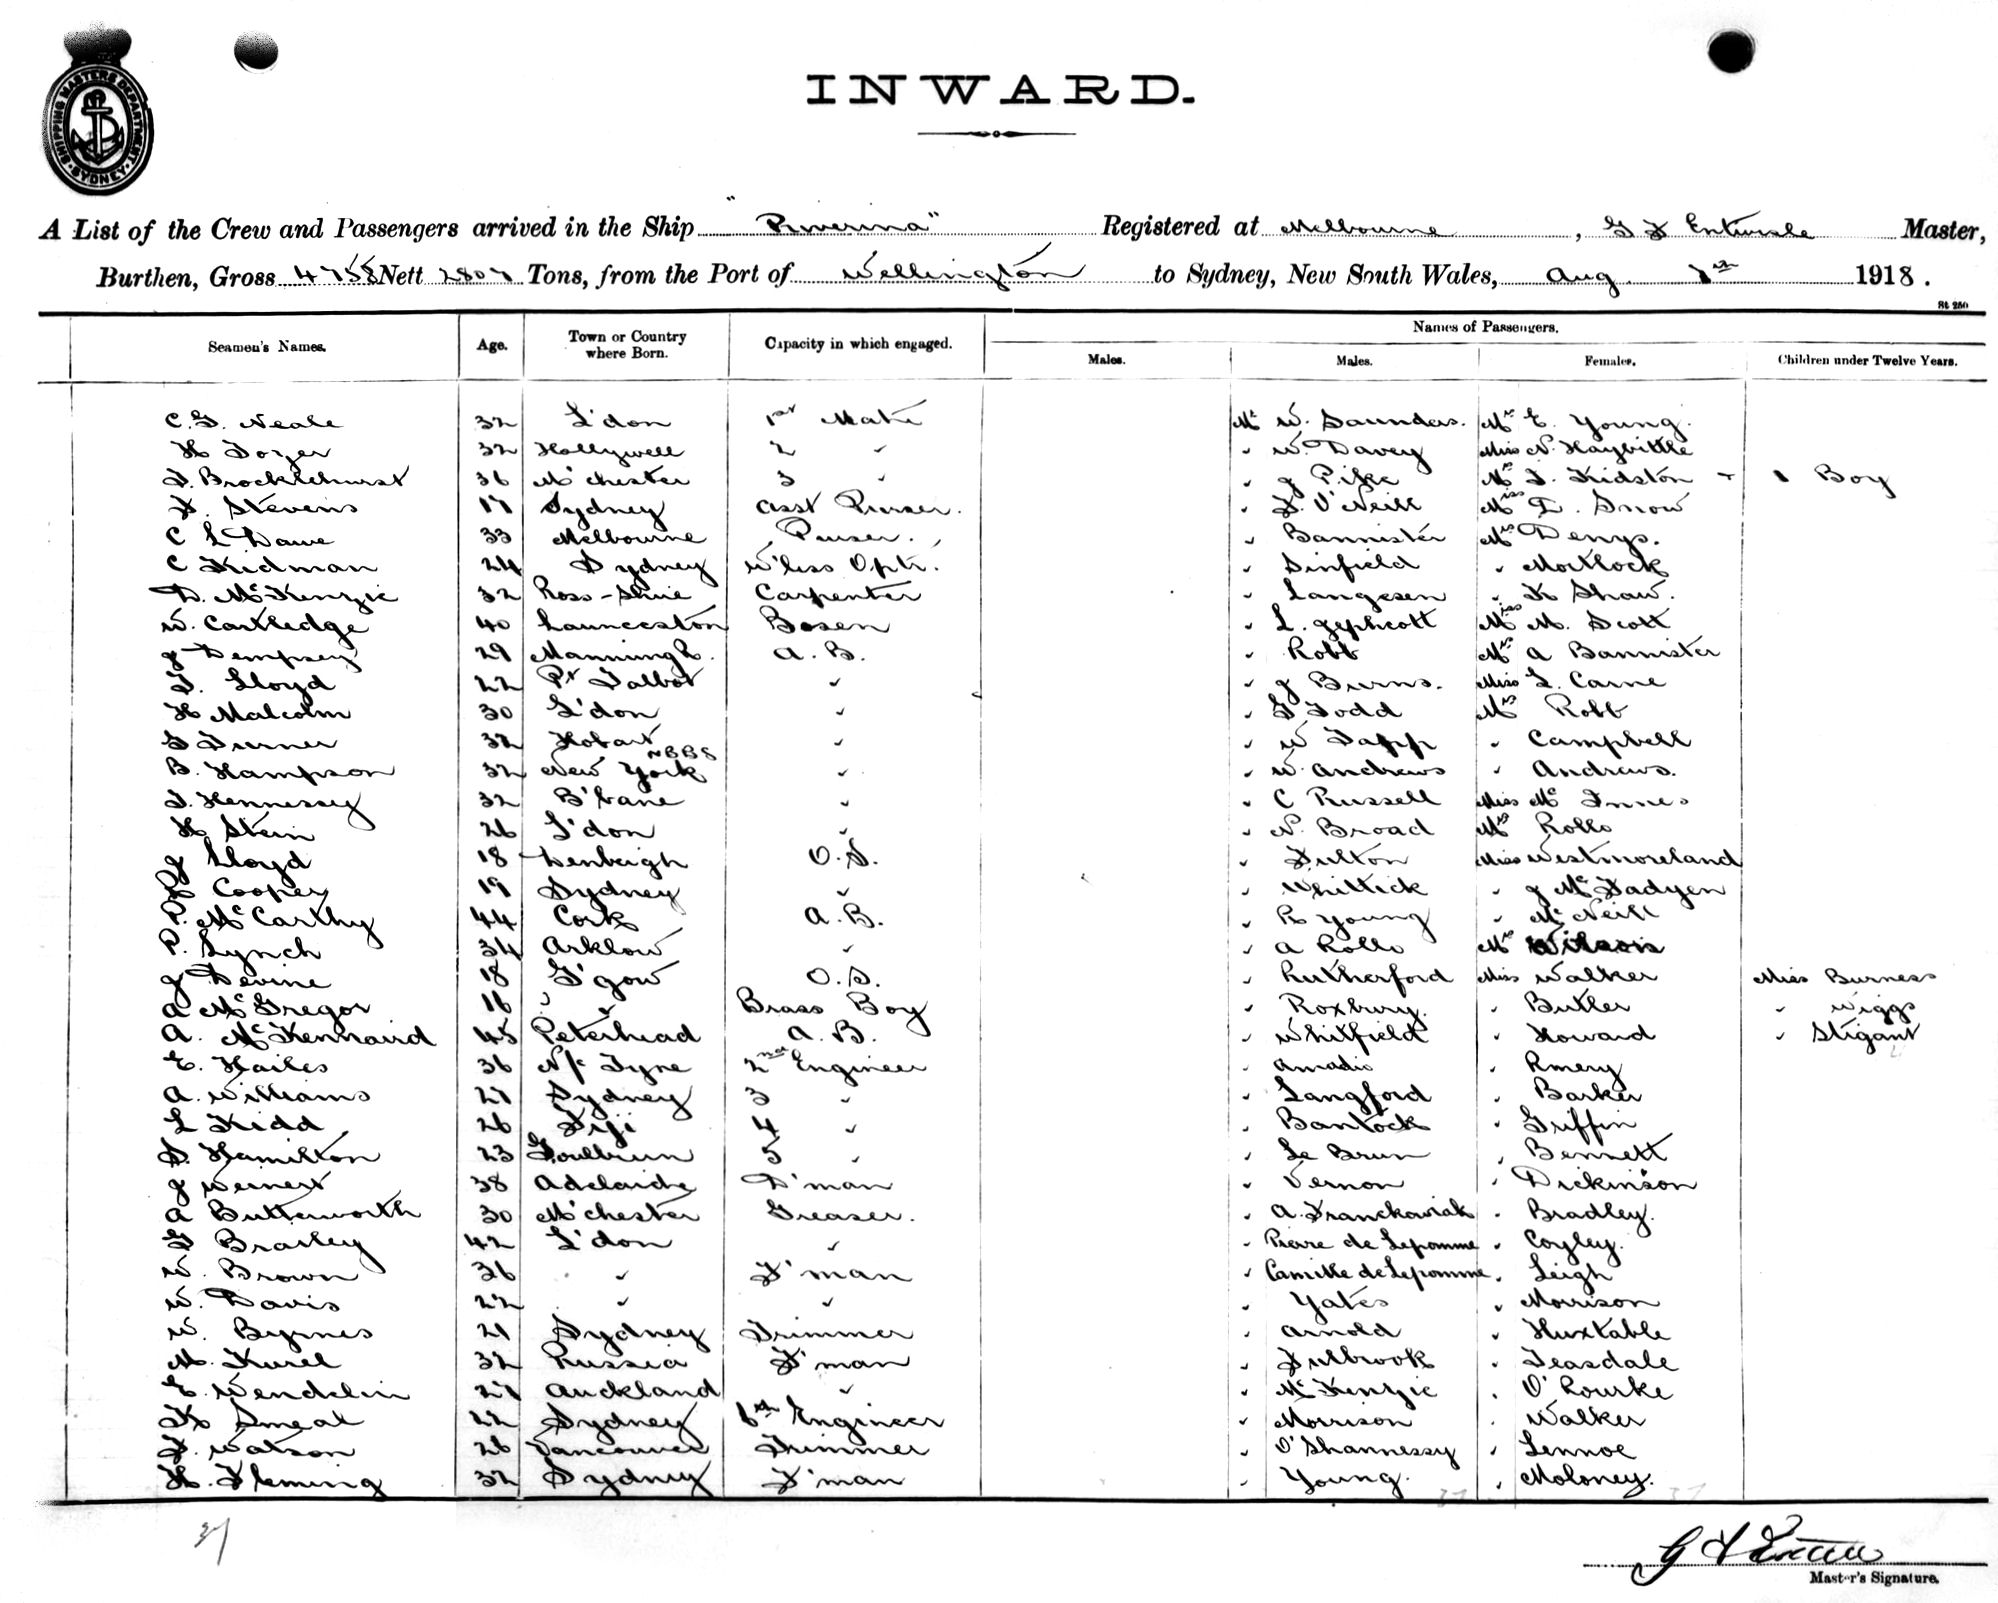 SHIPPING MASTERS DEPARTMENT · SYDNEY ·
INWARD.
A List of the Crew and Passengers arrived in the Ship "Riverina" Registered at Melbourne, G F Entwisle Master,
Burthen, Gross 4758 Nett 2807 Tons, from the Port of Wellington to Sydney, New South Wales, Aug 1st 1918.
St 250
Seamen's Names. Age. Town or Country where Born. Capacity in which engaged. Names of Passengers.
Males. Males. Females. Children under Twelve Years.
C. G. Neale 32 L'don 1st Mate Mr W. Saunders. Mrs E. Young.
H Tozer 32 Hollywell 2 " " W. Davey Miss N. Haybittle
J. Brocklehurst 36 M'chester 3 " " J Pike Mrs J. Kidston - 1 Boy
F. Stevens 17 Sydney Asst Purser. " J. O'Neill Miss E. Snow
C L Dawe 33 Melbourne Purser. " Bannister Mrs Denys.
C Kidman 24 Sydney W'less Optr. " Sinfield " Mortlock
D. McKenzie 32 Ross-Shire Carpenter " Langesen " K Shaw.
W. Cartledge 40 Launceston Bosen " L. Jephcott Miss M. Scott
J Dempsey 29 Manning R. A. B. " Robb Mrs A Bannister
J. Lloyd 22 Pt Talbot " " J Burns. Miss L. Carne
H Malcolm 30 L'don " " G Todd Mrs Robb
G Turner 32 Hobart " " W Tapp " Campbell
B. Hampson 32 New York " " W. Andrews " Andrews.
J. Hennessey 32 B'bane " " C Russell Miss McInnes
H Stein 26 L'don " " N. Broad Mrs Rollo
J Lloyd 18 Denbeigh O. S. " Fulton Miss Westmoreland
R Cooper 19 Sydney " " Whittick " J McFadyen
P. McCarthy 44 Cork A. B. " R Young " McNeill
P. Lynch 34 Arklow " " A Rollo Mrs Wilson
J Devine 18 G'gow O. S. " Rutherford Miss Walker Miss Burness
A McGregor 16 " " Brass Boy " Roxbury. " Butler " Wiggs
A. McKennaird 45 Peterhead A. B. " Whitfield " Howard " Stigant
E. Hailes 36 N/c Tyne 2nd Engineer " Amadio " Rmery
A. Williams 27 Sydney 3 " " Langford " Barker
L Kidd 26 Fiji 4 " " Bantock " Griffin
S. Hamilton 23 Goulburn 5 " " Le Brun " Bennett
J Weinert 38 Adelaide D'man " Vernon " Dickinson
A Butterworth 30 M'chester Greaser. " A. Franckowiak " Bradley.
G Brailey 42 L'don " " Pierre de Lepomme " Coyley.
W. Brown 36 " F'man " Camille de Lepomme " Leigh
W. Davis 22 " " " Yates " Morrison
W. Byrnes 21 Sydney Trimmer " Arnold " Huxtable
M. Kurel 32 Russia F'man " Fulbrook " Teasdale
E. Wendelin 27 Auckland " " McKenzie " O'Rourke
H Smeal 22 Sydney 6th Engineer " Morrison " Walker
J. Watson 26 Vancouver Trimmer " O'Shannessy " Lennoe
H. Fleming 32 Sydney F'man " Young. " Moloney.
37 37
37
G F Entwisle
Master's Signature.